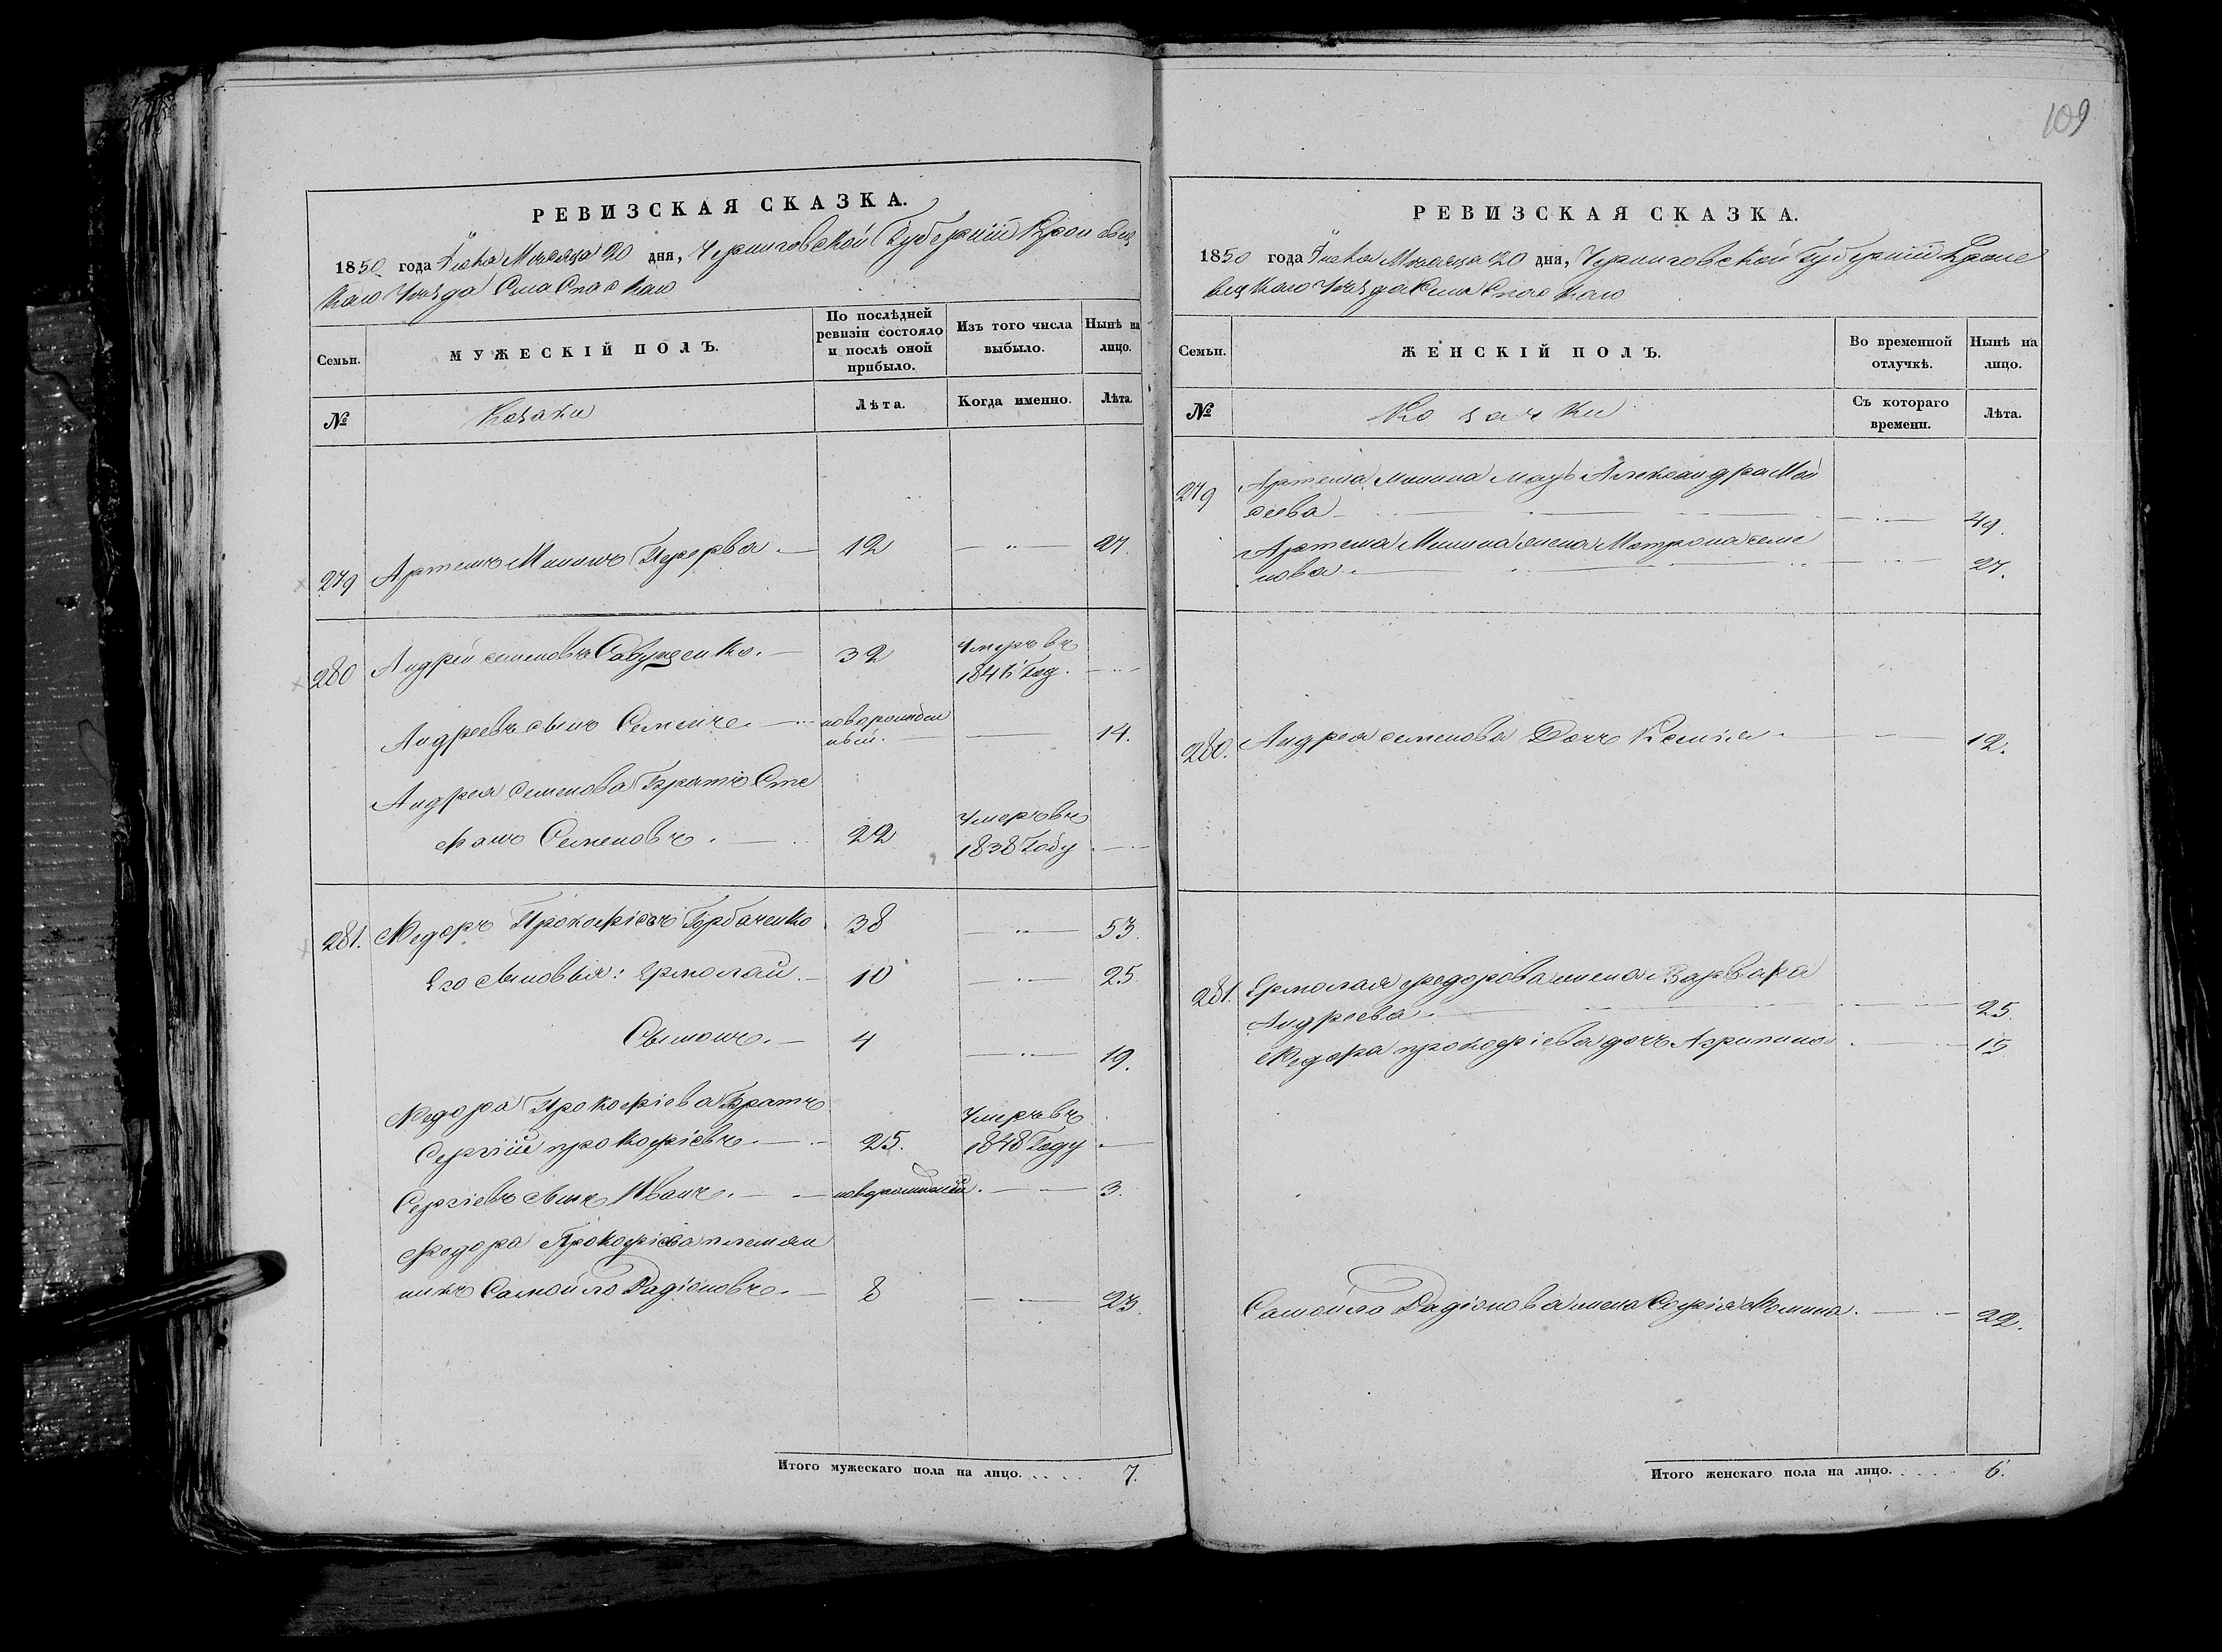 109
РЕВИЗСКАЯ СКАЗКА.
1850 года Іюня Мѣсяца 20 дня, Черниговской Губерніи Кролевец
каго Уѣзда Села Спаскаго
Семьи.
МУЖЕСКІЙ ПОЛЪ.
По послѣдней
ревизіи состояло
и послѣ оной
прибыло.
Изъ того числа
выбыло.
Нынѣ на
лицо.
№
Козаки
Лѣта.
Когда именно.
Лѣта.
279 Артемъ Мининъ Перерва 12 27.
280 Андрей семеновъ Савущенко. 32 Умеръ въ
1846 Год.
Андреевъ сынъ Семенъ новорожден
ный. 14.
Андрея семенова Братъ Сте
фанъ Семеновъ. 22 Умеръ въ
1838 Году
281. Федоръ Прокофіевъ Горбаченко 38 53.
Его сыновья: Ермолай 10 25
Сымонъ. 4 19.
Федора Прокофіева Братъ
Сергій прокофіевъ 25. Умеръ въ
1848 Году
Сергіевъ сынъ Иванъ. новорожденый. 3.
Федора Прокофіева племян
никъ Самойло Радіоновъ. 8 23.
Итого мужескаго пола на лицо. . . . . 7.
РЕВИЗСКАЯ СКАЗКА.
1850 года Іюня Мѣсяца 20 дня, Черниговской Губерніи Кроле
вецкаго Уѣзда Села Спаскаго
Семьи.
ЖЕНСКІЙ ПОЛЪ.
Во временной
отлучкѣ.
Нынѣ на
лицо.
№
Козачки
Съ котораго
времени.
Лѣта.
279 Артема Минина Мать Александра Мой
сеева 49.
Артема Минина жена Матрона семе
нова 27.
280. Андрея семенова Дочь Ксенія 12.
281. Ермолая федорова жена Варвара
Андреева. 25.
Федора прокофіева дочь Агрипина 15
Самойла Радіонова жена Софія Фомина. 22.
Итого женскаго пола на лицо. . . . . 6.